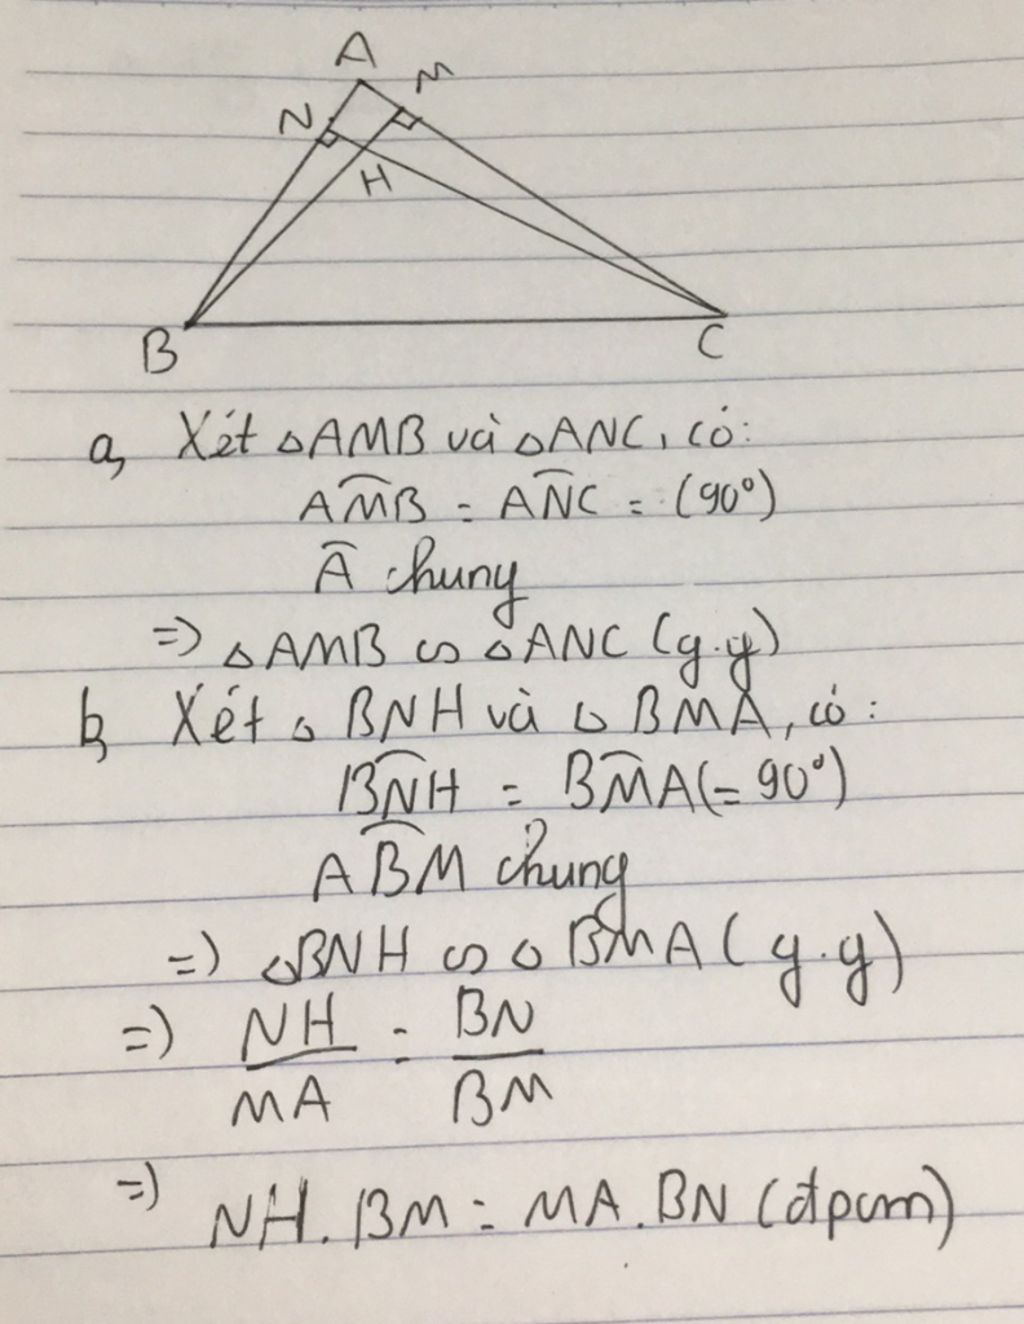 A
M
N
H
B
C
a, Xét △AMB và △ANC, có:
AM̂B = AN̂C = (90°)
Â chung
=> △AMB ∽ △ANC (g.g)
b, Xét △ BNH và △ BMA, có:
BN̂H = BM̂A (= 90°)
AB̂M chung
=> △BNH ∽ △ BMA (g.g)
=> NH/MA = BN/BM
=> NH. BM = MA. BN (đpcm)